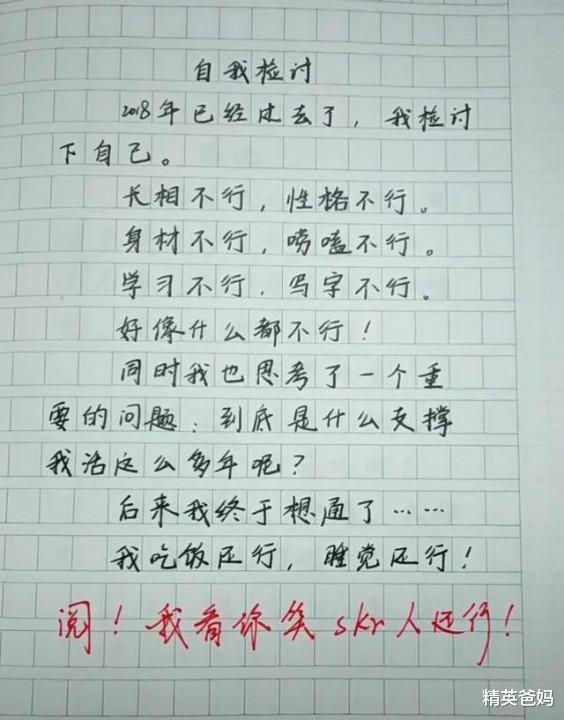 自我检讨
2018年已经过去了，我检讨
下自己。
长相不行，性格不行。
身材不行，唠嗑不行。
学习不行，写字不行。
好像什么都不行！
同时我也思考了一个重
要的问题：到底是什么支撑
我活这么多年呢？
后来我终于想通了……
我吃饭还行，睡觉还行！
阅！我看你笑skr人还行！
精英爸妈